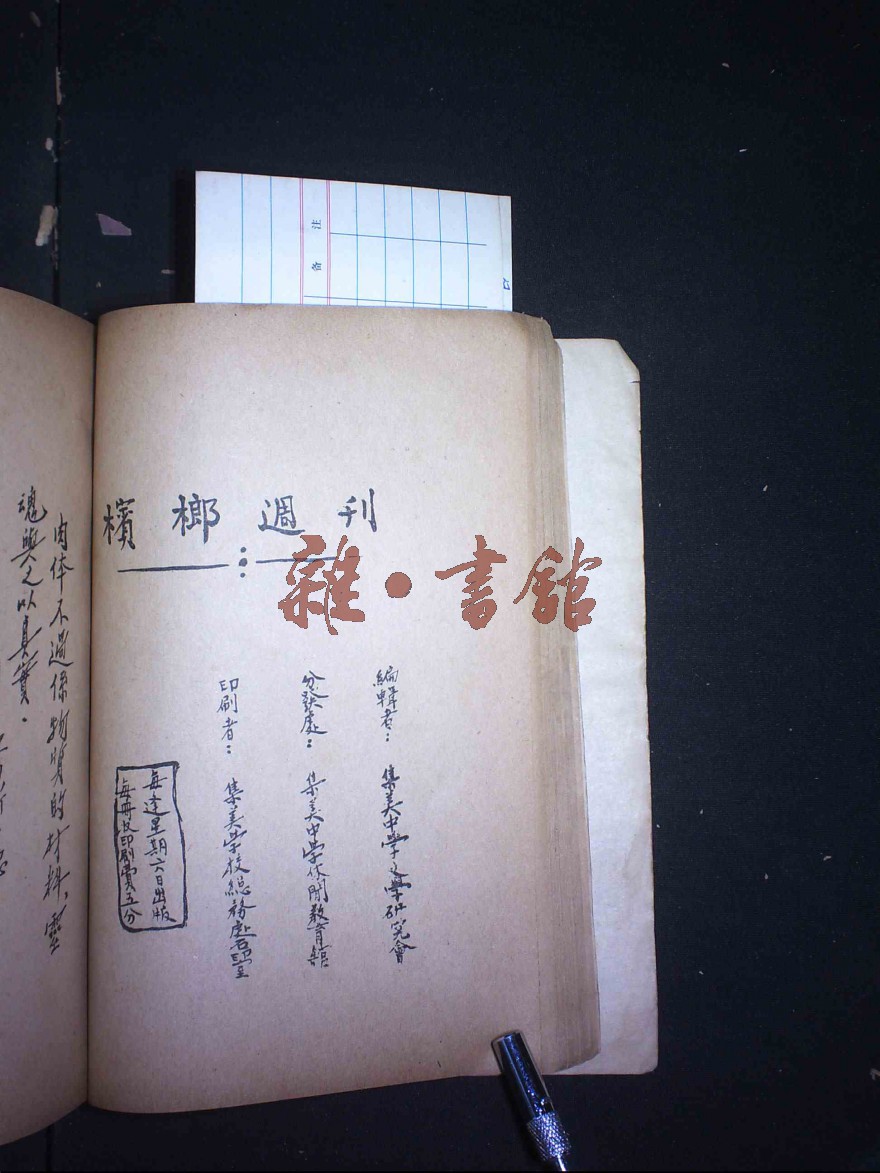 备注
檳榔週刊
雜·書館
編輯者：集美中學文學研究會
分發處：集美中學休閒教育館
印刷者：集美學校總務處石印室
每逢星期六日出版
每冊收印刷費五分
肉体不過係物質的材料，靈
魂與之以真實。